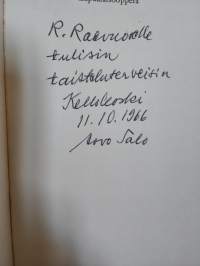 Lapualaisooppera
R. Raevuorelle
tulisin
taisteluterveisin
Kellokoski
11.10.1966
Arvo Salo